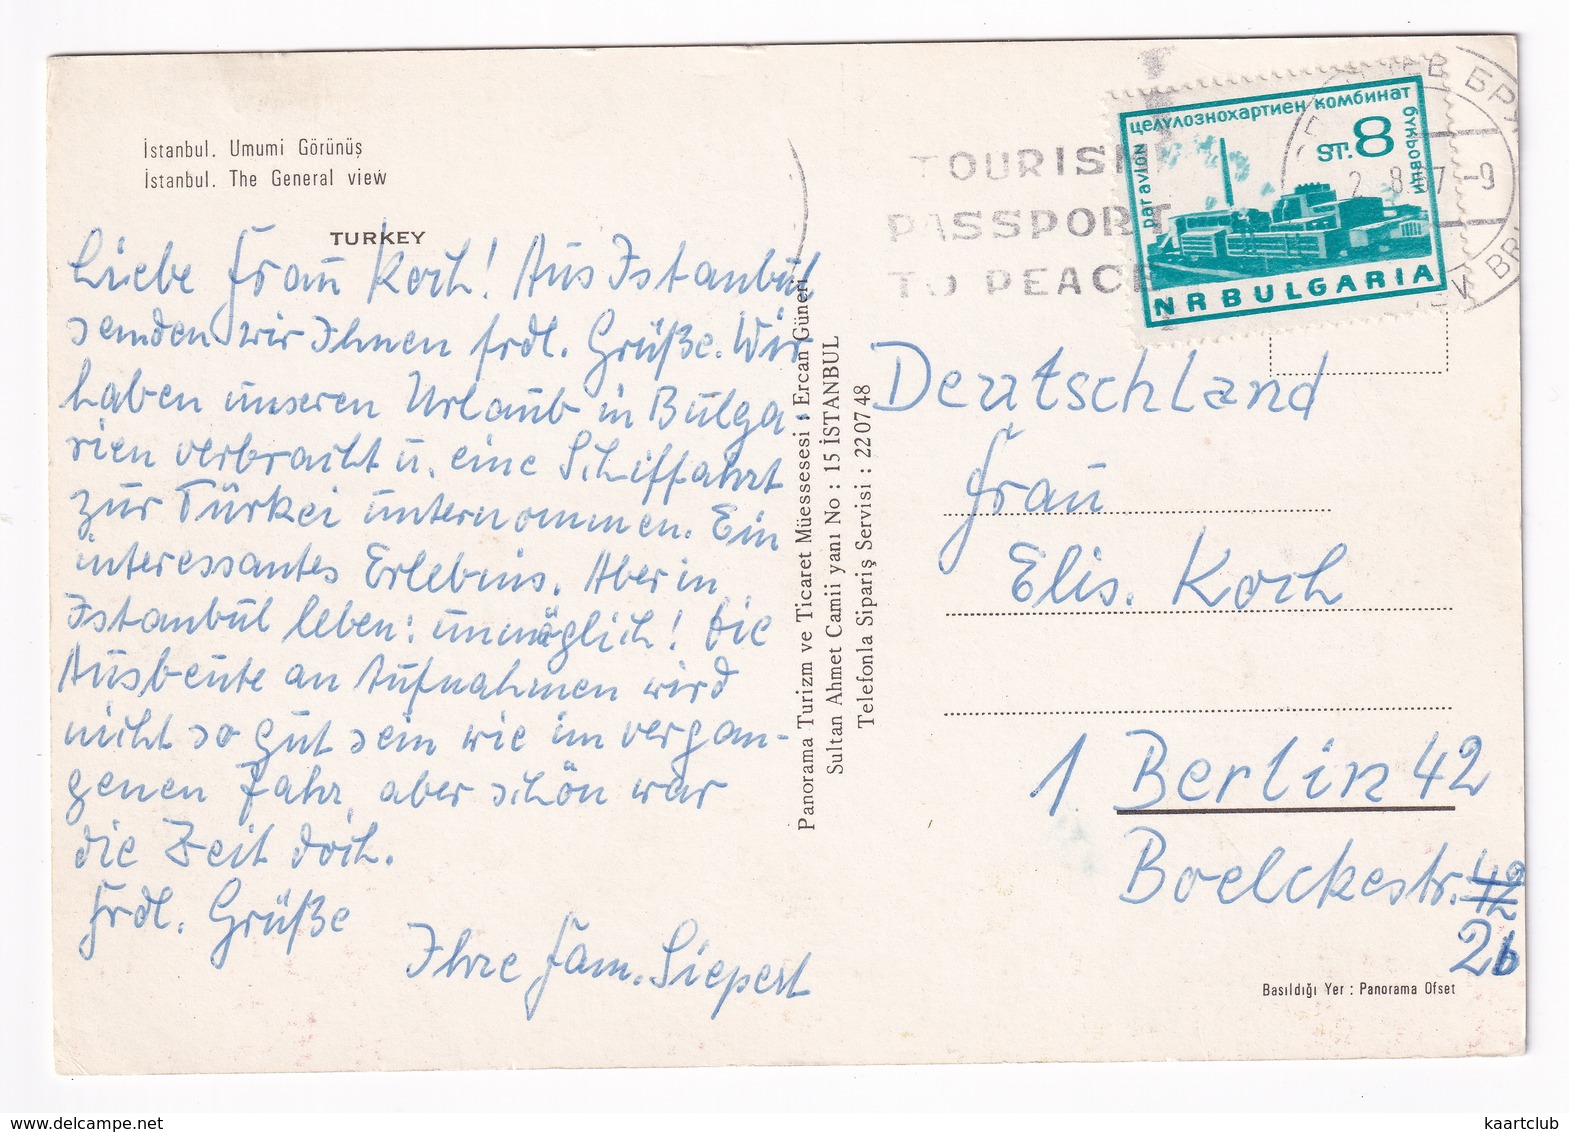 İstanbul. Umumi Görünüş
İstanbul. The General view
TURKEY
Liebe Frau Koch! Aus Istanbul
senden wir Ihnen frdl. Grüße. Wir
haben unseren Urlaub in Bulga-
rien verbracht u. eine Schiffahrt
zur Türkei unternommen. Ein
interessantes Erlebnis. Aber in
Istanbul leben: unmöglich! Die
Ausbeute an Aufnahmen wird
nicht so gut sein wie im vergan-
genen Jahr, aber schön war
die Zeit doch.
Frdl. Grüße
Ihre Fam. Siepert
Panorama Turizm ve Ticaret Müessesesi : Ercan Güneri
Sultan Ahmet Camii yanı No : 15 İSTANBUL
Telefonla Sipariş Servisi : 22 07 48
TOURISM
PASSPORT
TO PEACE
целулознохартиен комбинат
букьовци
par avion
ST. 8
NRBULGARIA
Deutschland
Frau
Elis. Koch
1 Berlin 42
Boelckestr. 42
2b
Basıldığı Yer : Panorama Ofset
www.delcampe.net
kaartclub